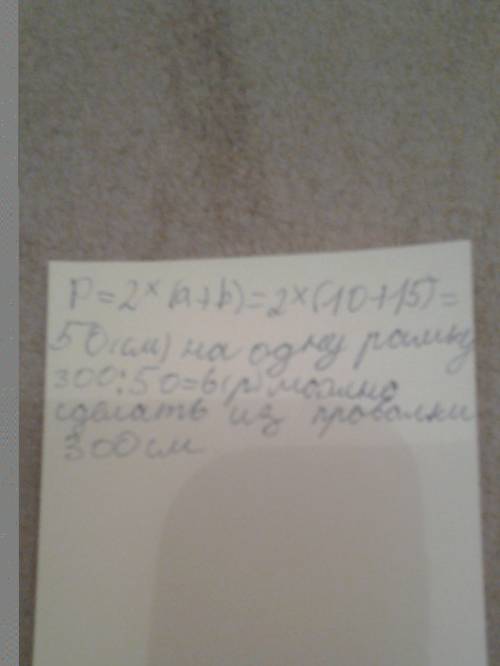 P=2×(a+b)=2×(10+15)=
50(см) на одну рамку
300:50=6(р) можно
сделать из проволки
300см